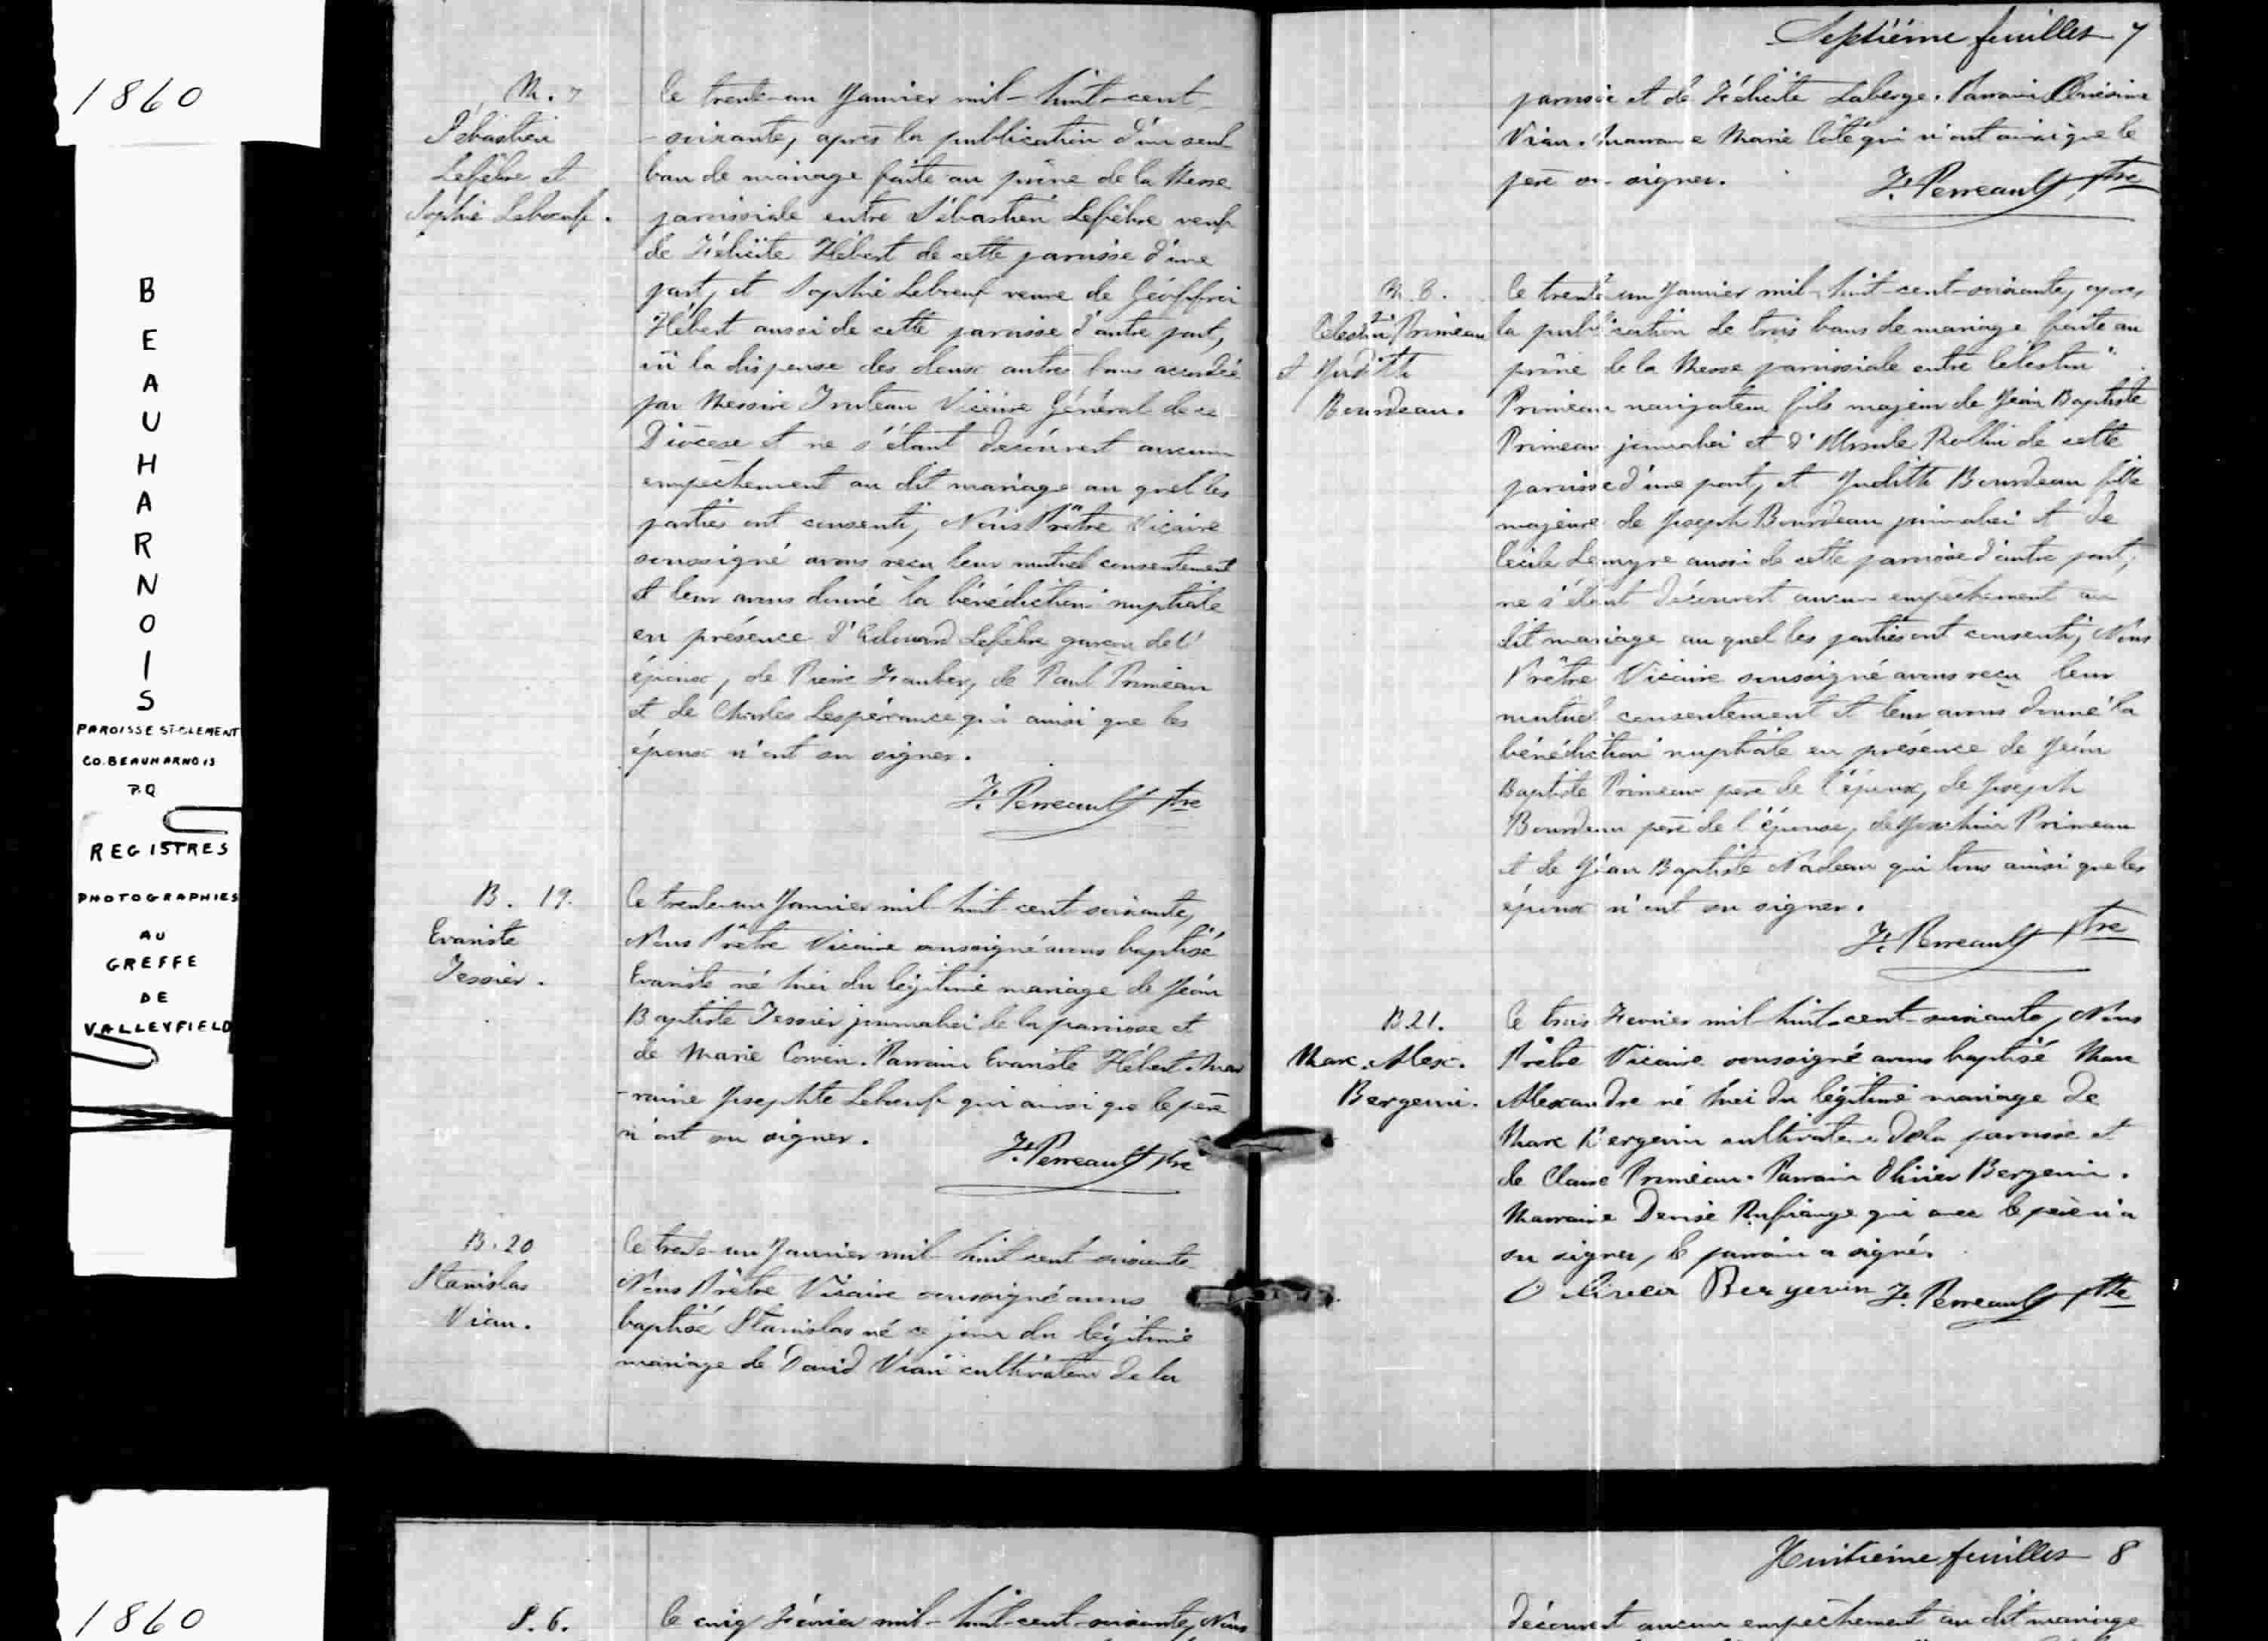 1860
B
E
A
U
H
A
R
N
O
I
S
PAROISSE ST-CLEMENT
CO. BEAUHARNOIS
P.Q
REGISTRES
PHOTOGRAPHIES
AU
GREFFE
DE
VALLEYFIELD
M. 7
Sébastien
Lefebvre et
Sophie Leboeuf.
Le trente-un Janvier mil-huit-cent-
-soixante, après la publication d'un seul
ban de mariage faite au prône de la Messe
paroissiale entre Sébastien Lefebvre veuf
de Félicité Hébert de cette paroisse d'une
part, et Sophie Leboeuf veuve de Géoffroi
Hébert aussi de cette paroisse d'autre part,
vû la dispense des deux autres bans accordée
par Messire Truteau Vicaire Général de ce
Diocèse et ne s'étant découvert aucun
empêchement au dit mariage au quel les
parties ont consenti, Nous Prêtre Vicaire
soussigné avons reçu leur mutuel consentement
et leur avons donné la bénédiction nuptiale
en présence d'Edouard Lefebvre garçon de l'
époux, de Pierre Fauber, de Paul Primeau
et de Charles Lespérance qui ainsi que les
époux n'ont su signer.
F. Perreault Ptre
B. 19.
Evariste
Tessier.
Le trente-un Janvier mil-huit-cent soixante,
Nous Prêtre Vicaire soussigné avons baptisé
Evariste né hier du légitime mariage de Jean
Baptiste Tessier journalier de la paroisse et
de Marie . Parrain Evariste Hébert. Mar
-raine Josephte Leboeuf qui ainsi que le père
n'ont su signer.
F. Perreault Ptre
B. 20
Stanislas
Viau.
Le trente-un Janvier mil-huit cent soixante
Nous Prêtre Vicaire soussigné avons
baptisé Stanislas né ce jour du légitime
mariage de David Viau cultivateur de la
Septième feuillet 7
paroisse et de Félicité Laberge. Parrain Onésime
Viau. Marraine Marie Côté qui n'ont ainsi que le
père su signer.
F. Perreault Ptre
M. 8.
Célestin Primeau
et Judith
Bourdeau.
Le trente un Janvier mil-huit-cent-soixante, après
la publication de trois bans de mariage faite au
prône de la Messe paroissiale entre Célestin
Primeau navigateur fils majeur de Jean Baptiste
Primeau journalier et d'Ursule Rollin de cette
paroisse d'une part, et Judith Bourdeau fille
majeure de Joseph Bourdeau journalier et de
Cécile Lemyre aussi de cette paroisse d'autre part,
ne s'étant découvert aucun empêchement au
dit mariage au quel les parties ont consenti, Nous
Prêtre Vicaire soussigné avons reçu leur
mutuel consentement et leur avons donné la
bénédiction nuptiale en présence de Jean
Baptiste Primeau père de l'époux, de Joseph
Bourdeau père de l'épouse, de Joachim Primeau
et de Jean Baptiste Nadeau qui tous ainsi que les
époux n'ont su signer.
F. Perreault Ptre
B. 21.
Marc. Alex.
Bergevin.
Le trois Fevrier mil-huit-cent-soixante, Nous
Prêtre Vicaire soussigné avons baptisé Marc
Alexandre né hier du légitime mariage de
Marc Bergevin cultivateur de la paroisse et
de Claire Primeau. Parrain Olivier Bergevin.
Marraine Denise qui avec le père n'a
su signer, le parrain a signé.
Olivier Bergevin F. Perreault Ptre
1860
S. 6.
Le cinq Février mil-huit-cent-soixante, Nous
Huitième feuillet 8
découvert aucun empêchement au dit mariage